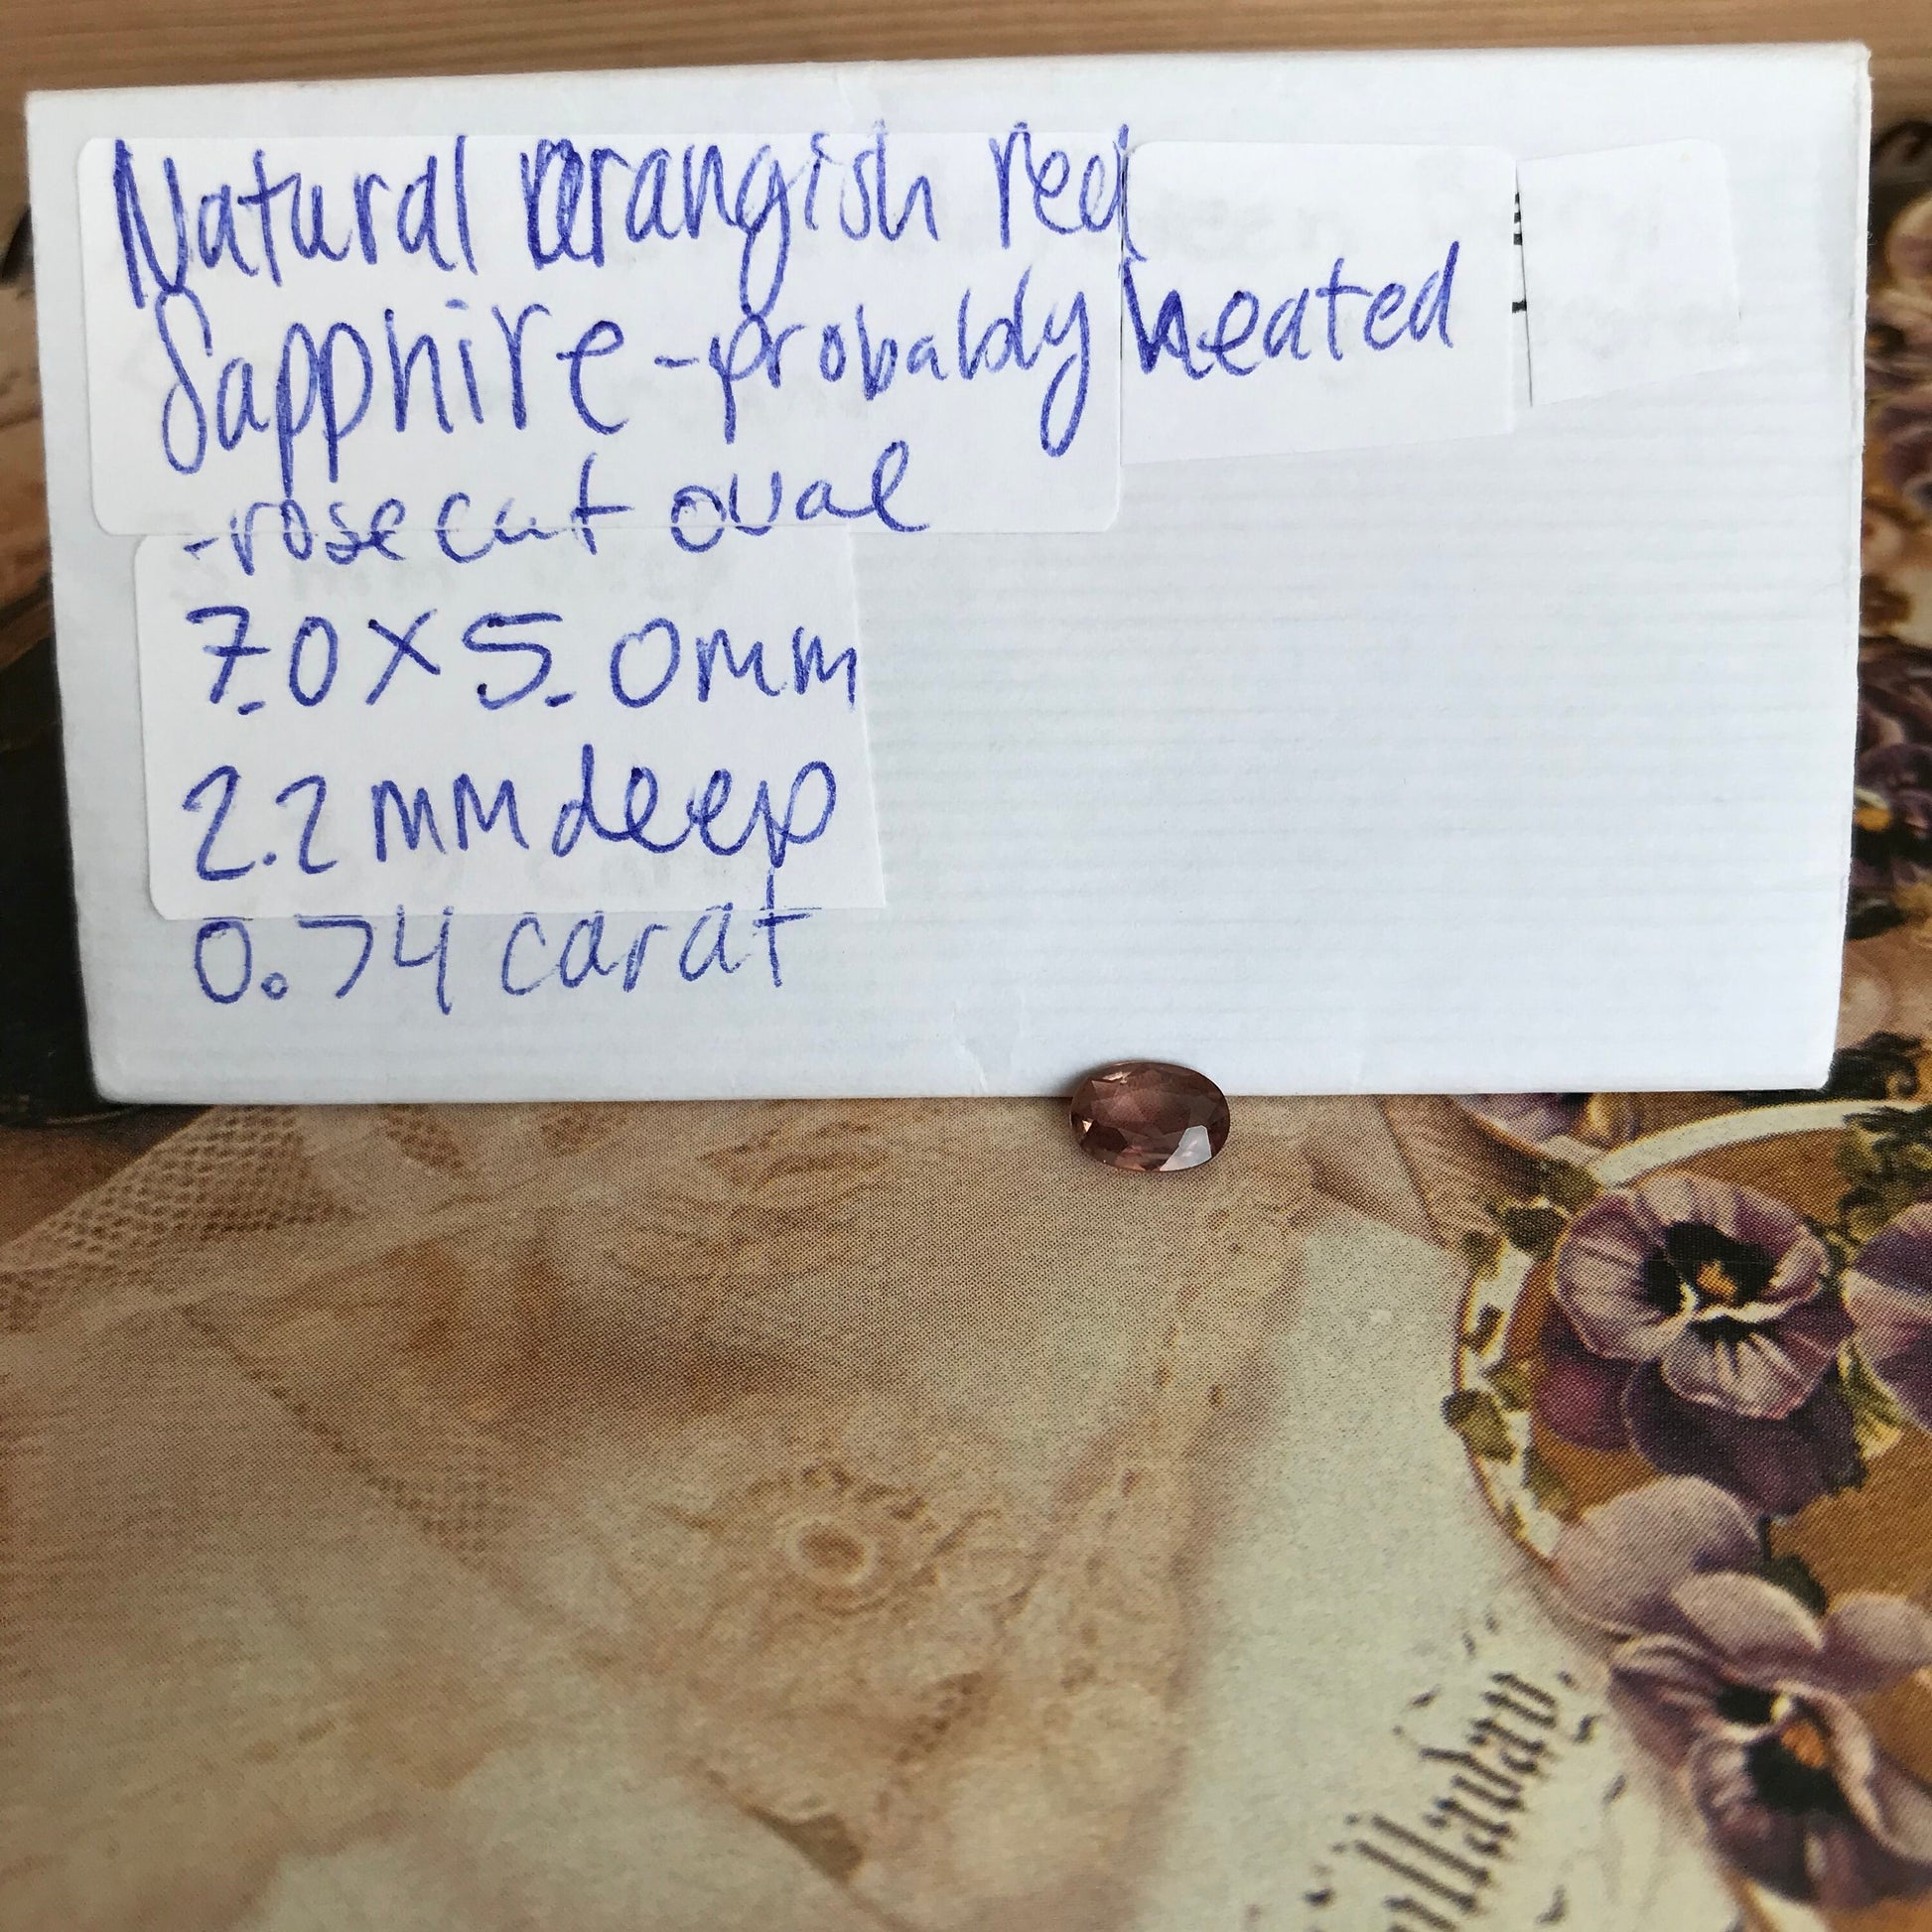 Natural orangish red
Sapphire - probably heated
- rose cut oval
7.0 x 5.0mm
2.2 mm deep
0.74 carat